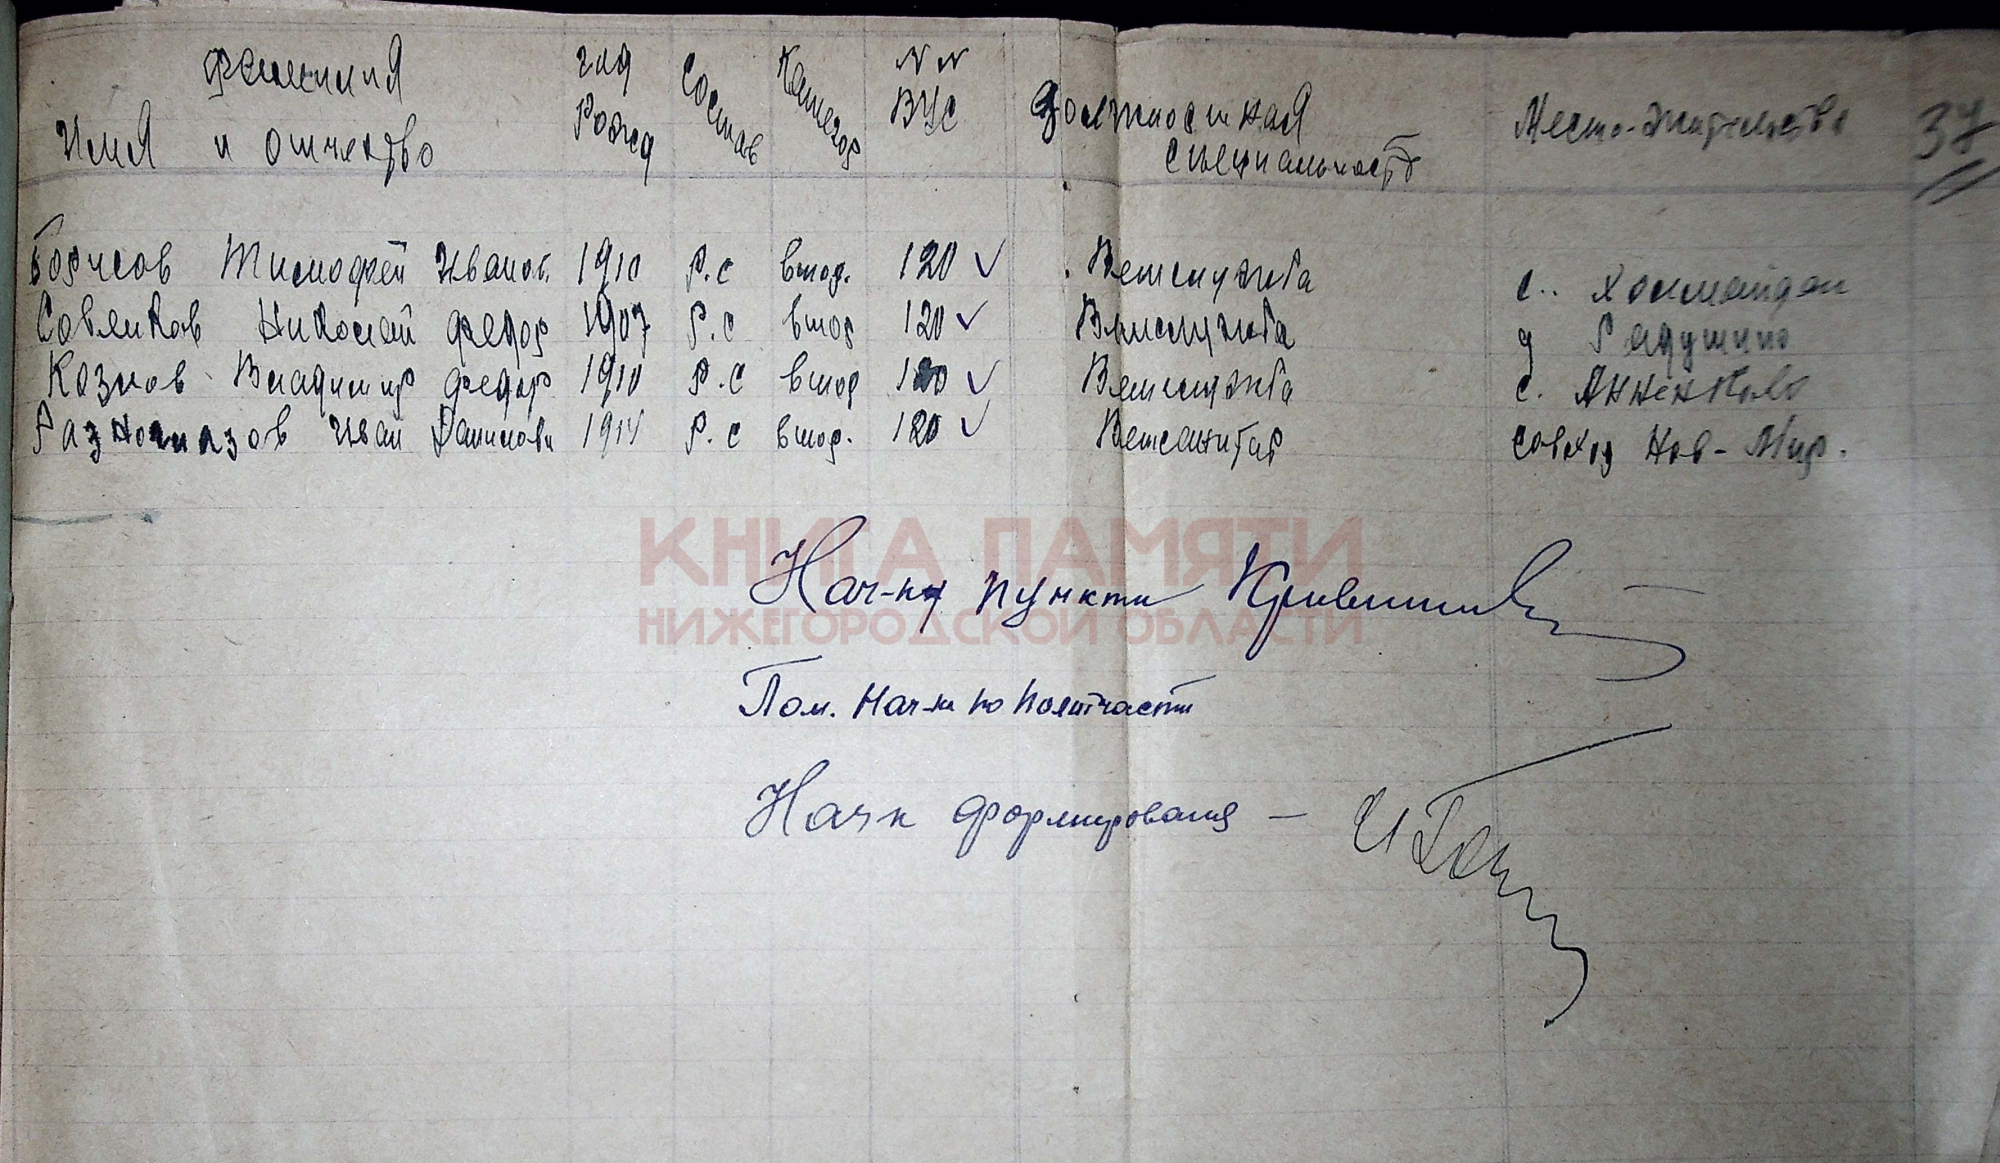 Фамилия Имя и отчество год Рожд Состав Категор NN ВУС Должностная специальность Место-жительство 37
Борисов Тимофей Иванов. 1910 Р.С втор. 120 ✓ Ветслужба с. Холмайдан
Совляков Николай Федор 1907 Р.С втор 120 ✓ Ветслужба д
Козлов Владимир Федор 1910 Р.С втор 120 ✓ Ветслужба с. Анненково
Иван Данилови 1914 Р.С втор. 120 ✓ Ветсанитар совхоз Нов-Мир.
КНИГА ПАМЯТИ
НИЖЕГОРОДСКОЙ ОБЛАСТИ
Нач-к пункта
Пом. Нач-ка по политчасти
Нач-к формирования –